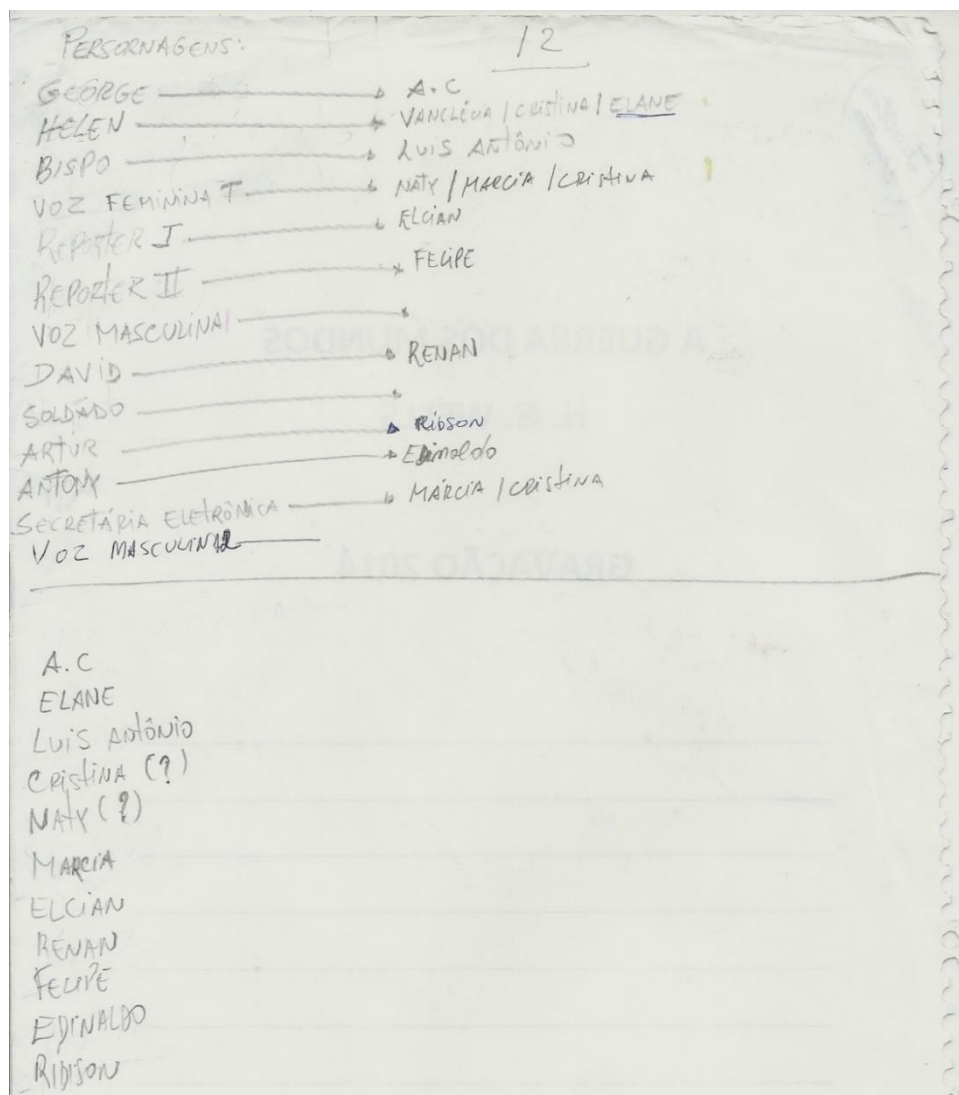 PERSORNAGENS: 12
GEORGE A.C
HELEN VANCLÉCIA / CRISTINA / ELANE
BISPO LUIS ANTÔNIO
VOZ FEMININA I NATY / MARCIA / CRISTINA
REPORTER I ELCIAN
REPORTER II FELIPE
VOZ MASCULINA I
DAVID RENAN
SOLDADO
ARTUR RIDSON
ANTONY Edinaldo
SECRETÁRIA ELETRÔNICA MÁRCIA / CRISTINA
VOZ MASCULINA 2
A.C
ELANE
LUIS ANTÔNIO
CRISTINA (?)
NATY (?)
MARCIA
ELCIAN
RENAN
FELIPE
EDINALDO
RIDISON
A GUERRA DOS MUNDOS
H. G. WELLS
GRAVAÇÃO 2014